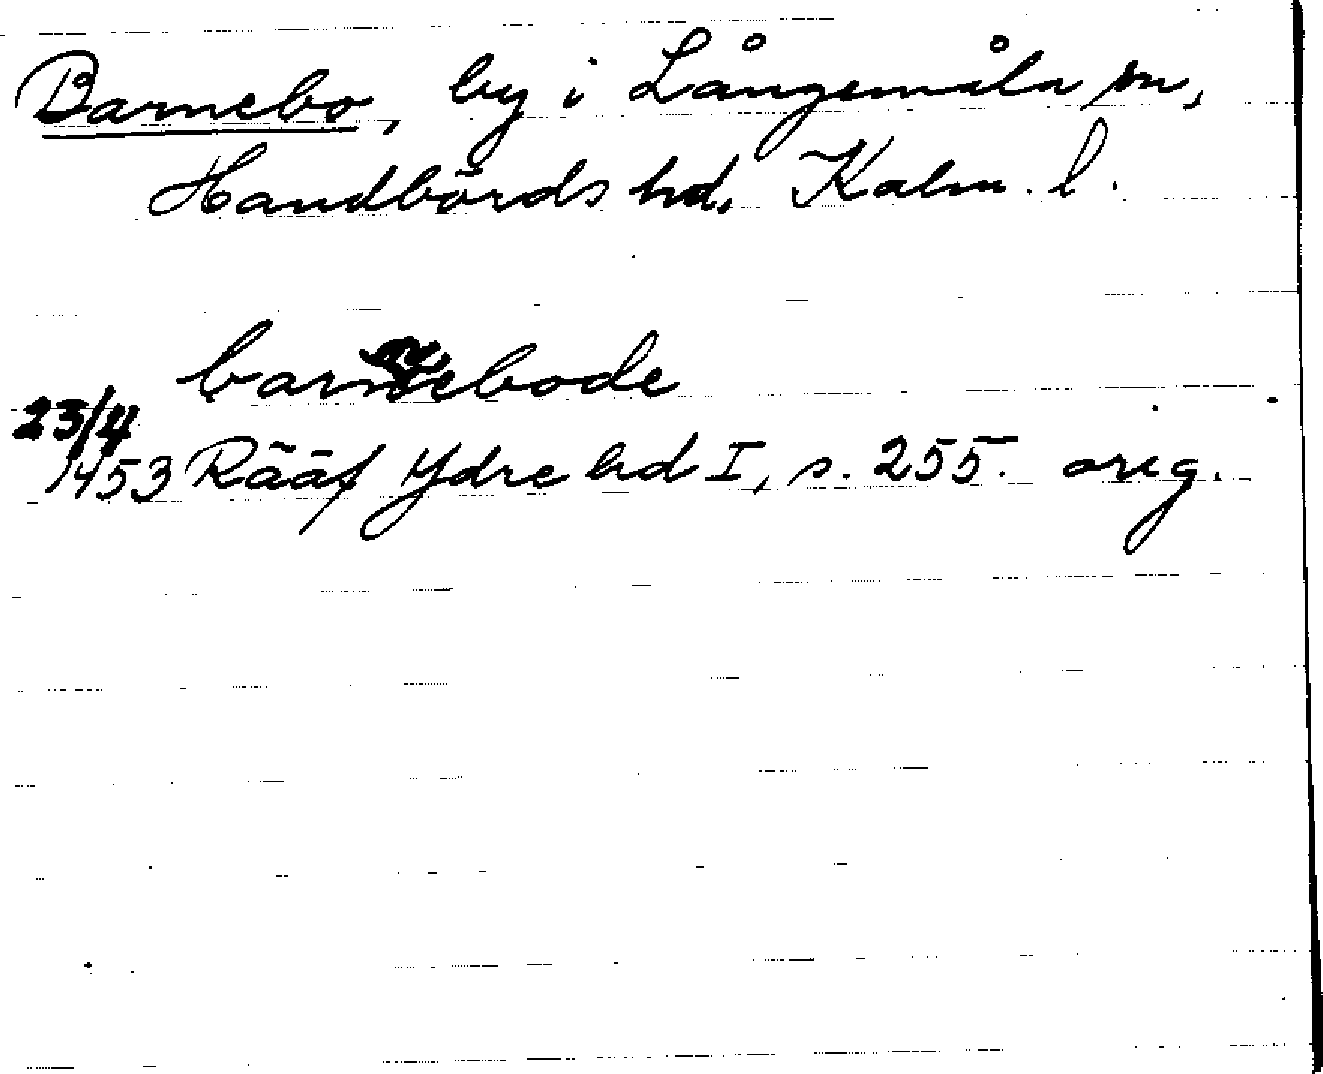 Barnebo, by i Långemåla sn,
Handbörds hd. Kalm. l.
barnebode
23/4
1453 Rääf Ydre hd I, s. 255. orig.